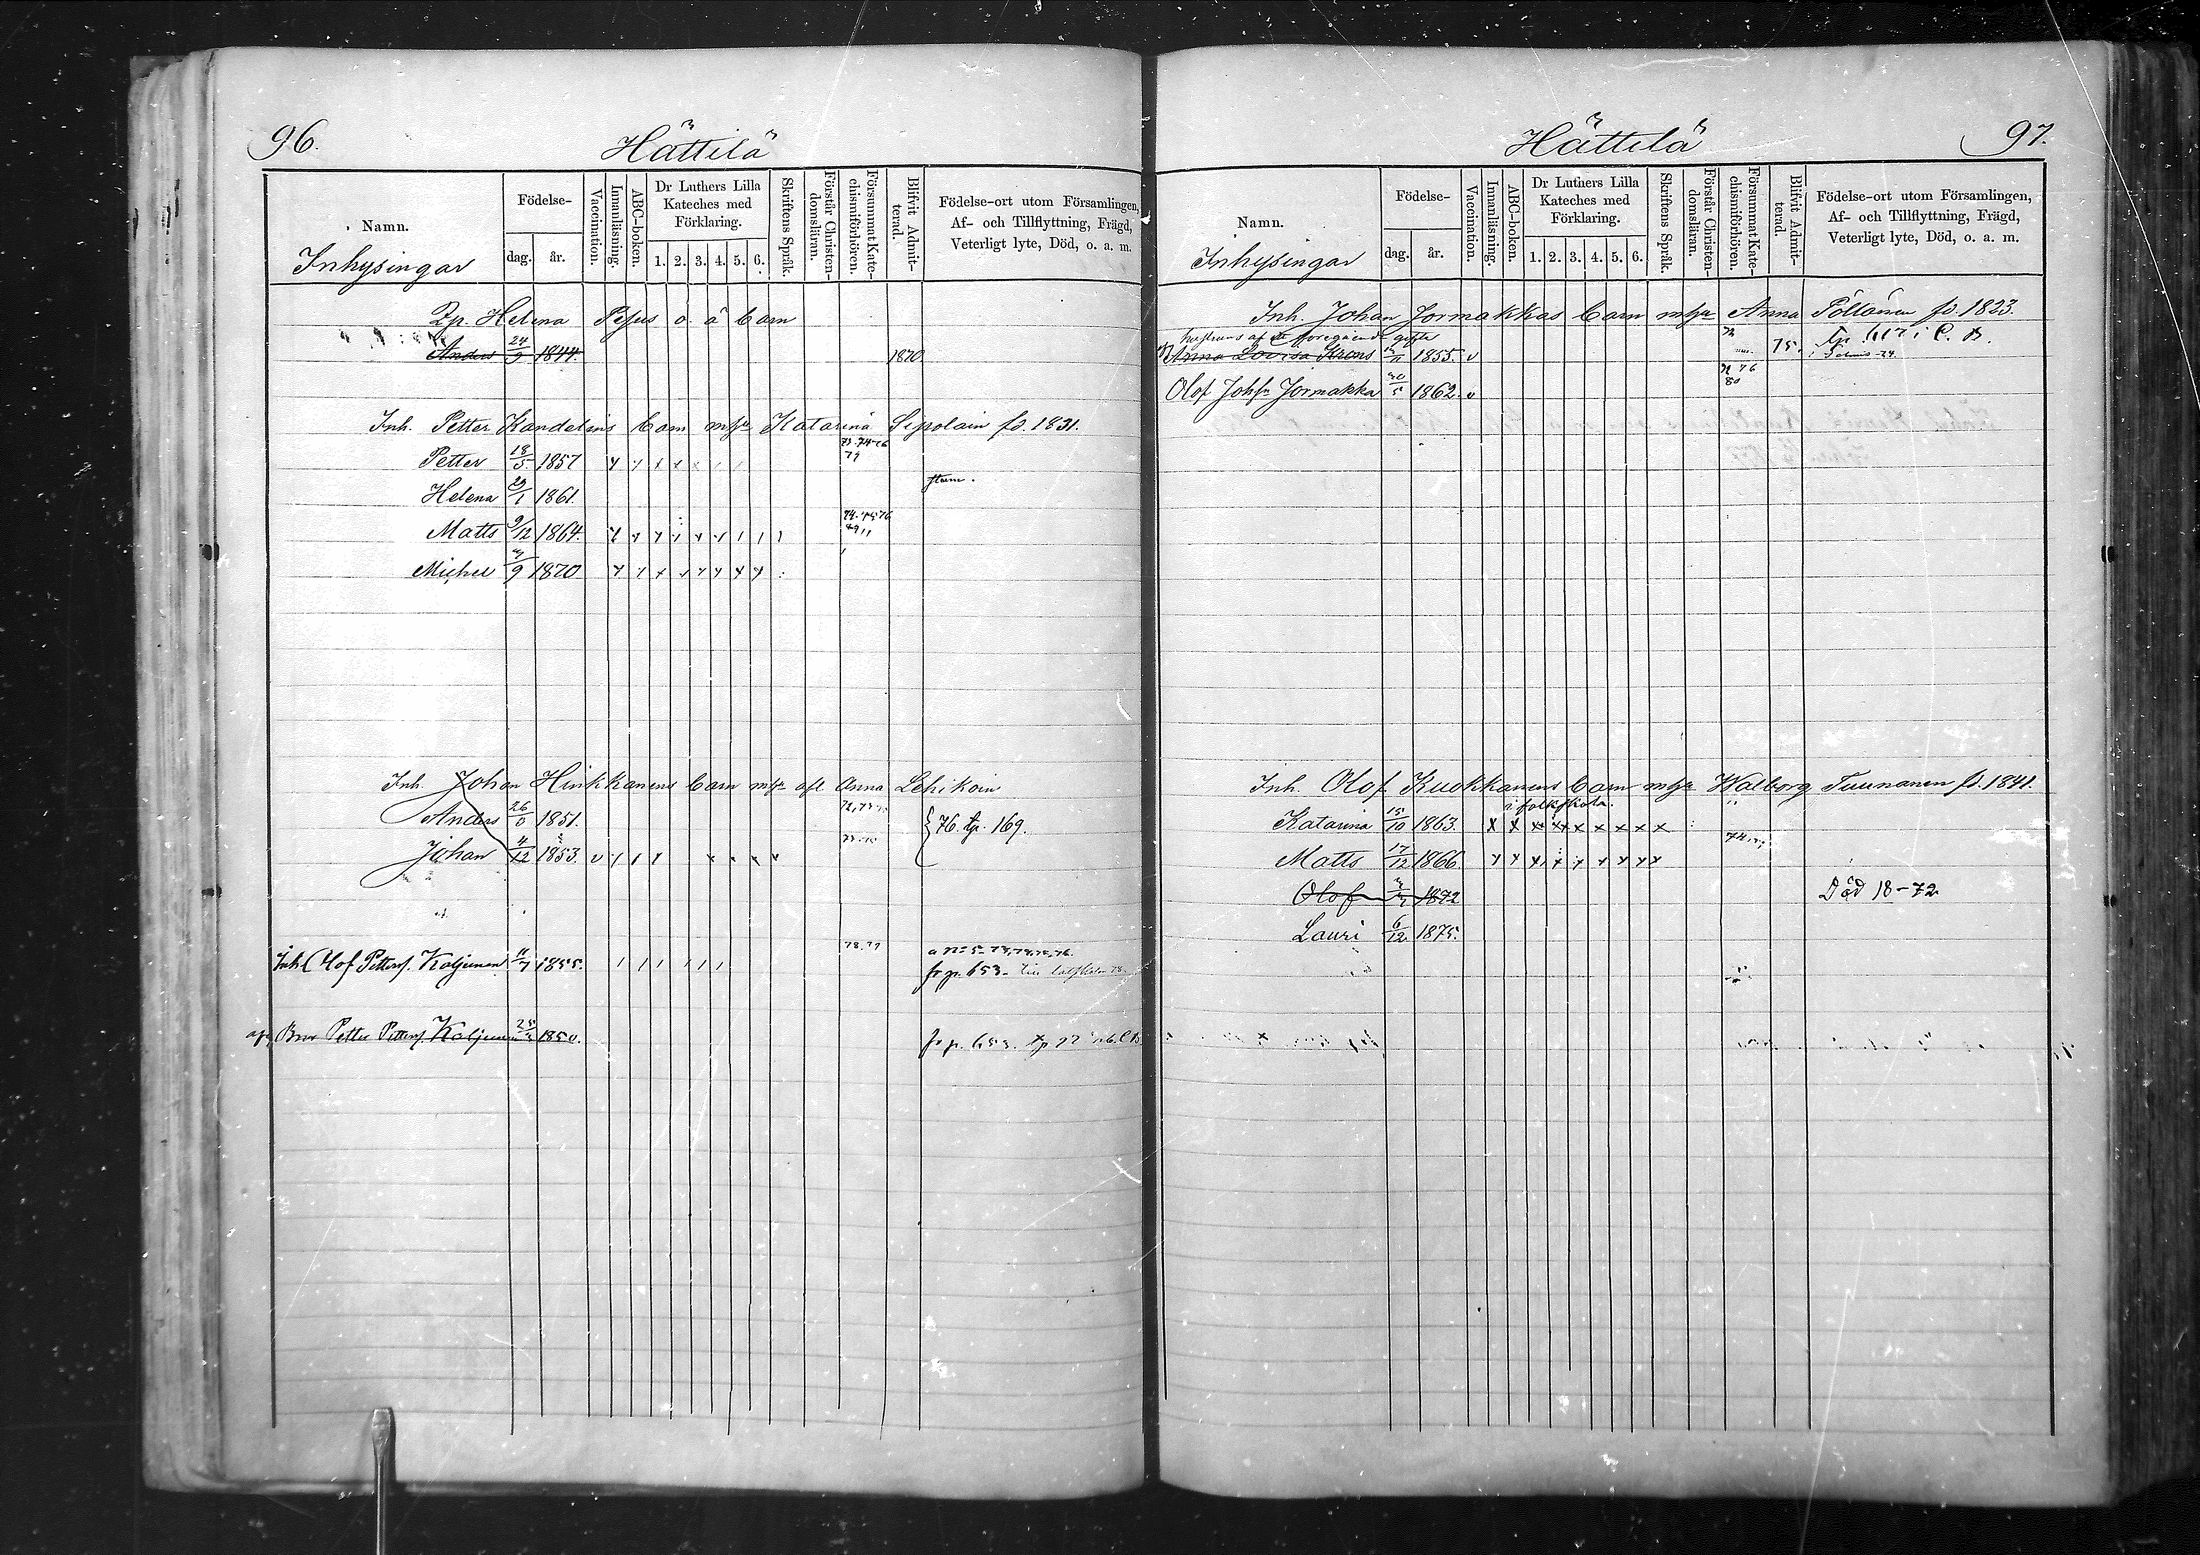 96.
Hättilä
Namn.
Inhysingar
Födelse-
dag.
år.
Vaccination.
Innanläsning.
ABC-boken.
Dr Luthers Lilla
Kateches med
Förklaring.
1. 2. 3. 4. 5. 6.
Skriftens Språk.
Förstår Christen-
domsläran.
Försummat Kate-
chismiförhören.
Blifvit Admit-
terad.
Födelse-ort utom Församlingen,
Af- och Tillflyttning, Frägd,
Veterligt lyte, Död, o. a. m.
Helena o. ä barn
Anders 24/9 1844. 1870
Inh. Petter Kandelins barn Katarina Sipolain fd. 1831.
73. 74-76
Petter 18/5 1857 79
Helena 29/1 1861.
Matts 9/12 1864.
Michel 3/9 1870
Inh. Johan Hinkkanens barn Anna Lehikoin
Anders 26/6 1851. 76. tp. 169.
Johan 11/12 1853. v
78. 79
Inh. Olof Petterss. Koljonen 11/7 1855. fr p. 653.
Bror Petter Petterss. Koljonen 1850. fr p. 653.
97.
Hättilä
Namn.
Inhysingar
Födelse-
dag.
år.
Vaccination.
Innanläsning.
ABC-boken.
Dr Luthers Lilla
Kateches med
Förklaring.
1. 2. 3. 4. 5. 6.
Skriftens Språk.
Förstår Christen-
domsläran.
Försummat Kate-
chismiförhören.
Blifvit Admit-
terad.
Födelse-ort utom Församlingen,
Af- och Tillflyttning, Frägd,
Veterligt lyte, Död, o. a. m.
Inh. Johan Jormakkas barn Anna Pöllänen fd. 1823.
hustruns af föregående gifte
Anna Lovisa Krons 1855. v 75.
Olof Johss Jormakka 30/5 1862. v 80
Inh. Olof Kuokkanens barn Walborg Tuunanen fd. 1841.
i folkskola.
Katarina 15/10 1863. x x x x x x x x x
Matts 17/12 1866.
Olof 1872 Död 18-72
Lauri 6/12 1875.